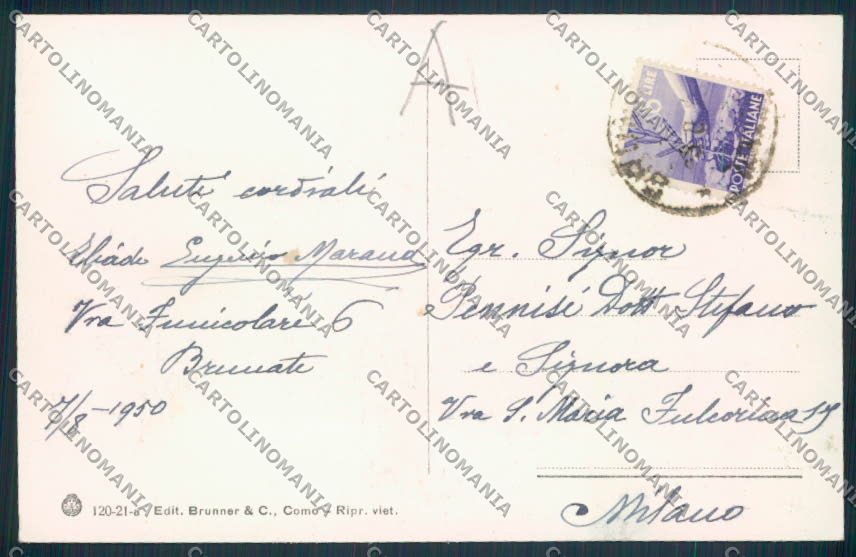 A
LIRE
POSTE ITALIANE
Saluti cordiali
Eugenio
Via Funicolare 6
Brunate
7/8-1950
Egr. Signor
Pennisi Dott Stefano
e Signora
Via S. Maria Fulcorina 15
Milano
120-21-a Edit. Brunner & C., Como - Ripr. viet.
CARTOLINOMANIA